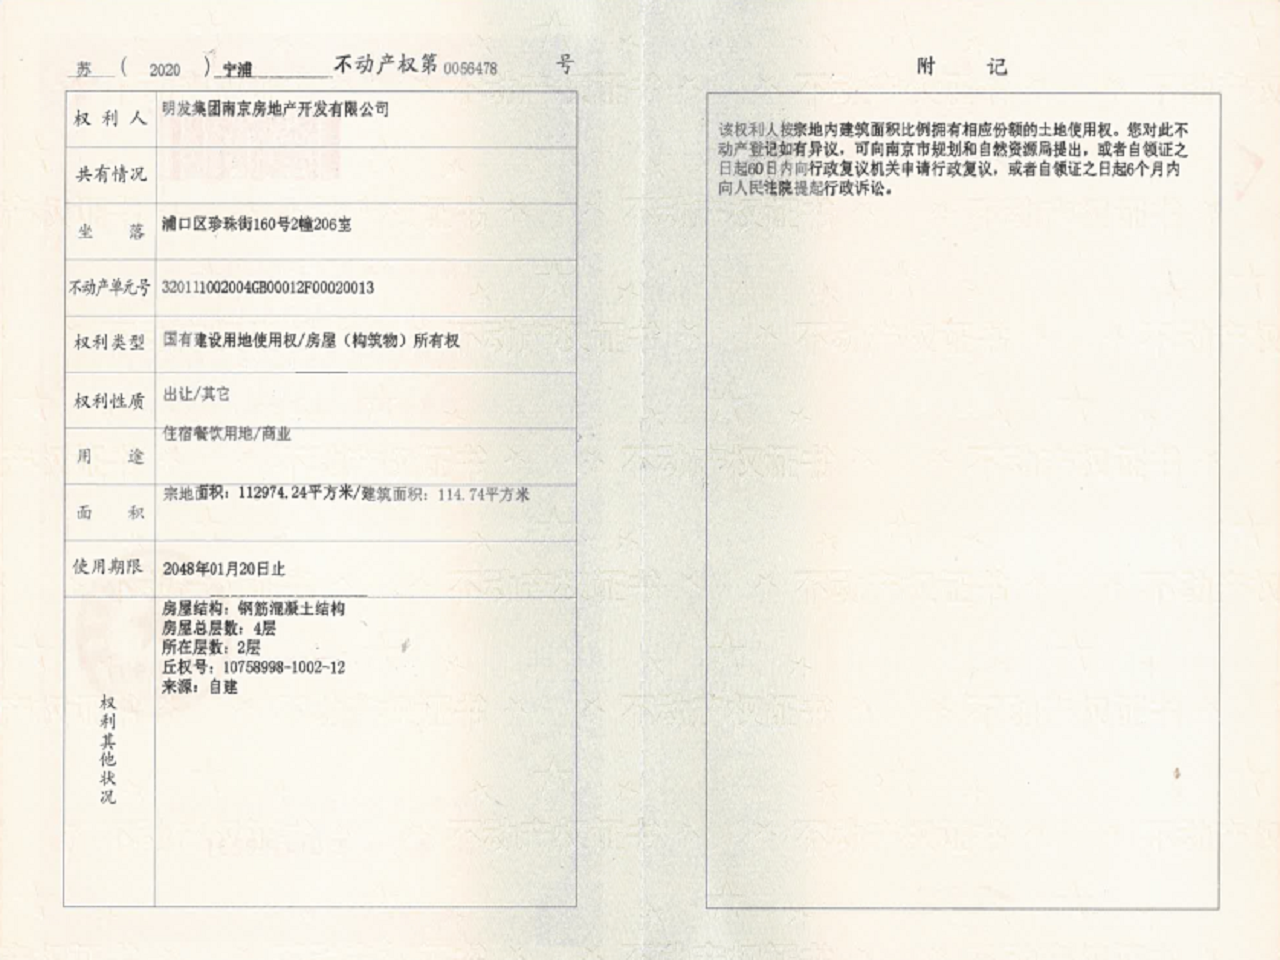 苏 ( 2020 ) 宁浦 不动产权第 0056478 号
权利人 明发集团南京房地产开发有限公司
共有情况
坐落 浦口区珍珠街160号2幢206室
不动产单元号 320111002004GB00012F00020013
权利类型 国有建设用地使用权/房屋（构筑物）所有权
权利性质 出让/其它
用途 住宿餐饮用地/商业
面积 宗地面积：112974.24平方米/建筑面积：114.74平方米
使用期限 2048年01月20日止
权利其他状况
房屋结构：钢筋混凝土结构
房屋总层数：4层
所在层数：2层
丘权号：10758998-1002-12
来源：自建
附 记
该权利人按宗地内建筑面积比例拥有相应份额的土地使用权。您对此不
动产登记如有异议，可向南京市规划和自然资源局提出，或者自领证之
日起60日内向行政复议机关申请行政复议，或者自领证之日起6个月内
向人民法院提起行政诉讼。